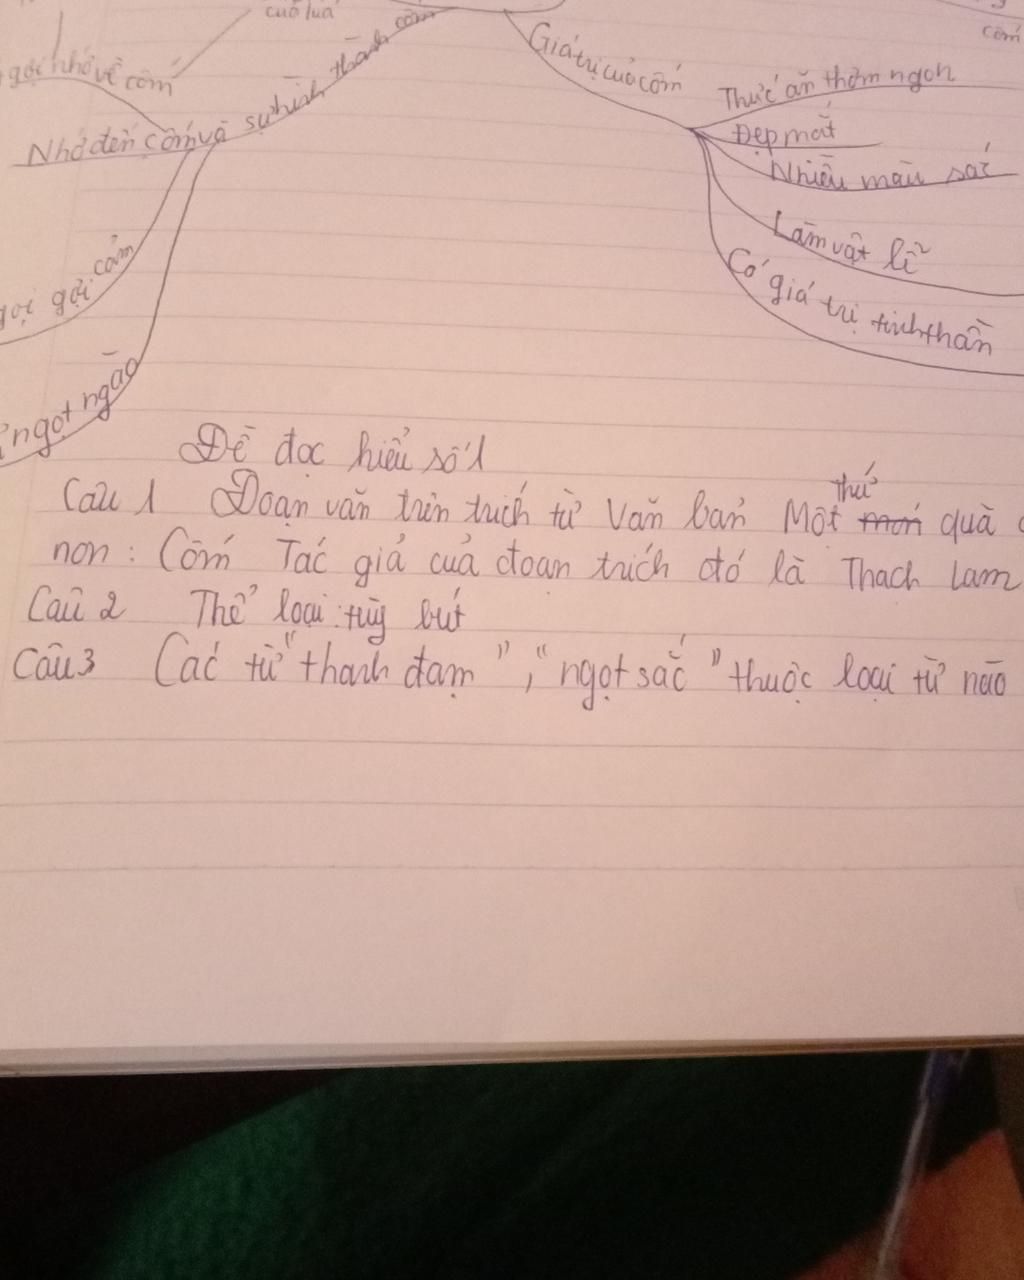 của lúa
gợi nhớ về cốm
Nhớ đến cốm và sự hình thành cốm
gọi gợi cảm
ngọt ngào
Giá trị của cốm
cốm
Thức ăn thơm ngon
Đẹp mắt
Nhiều màu sắc
Làm vật lễ
Có giá trị tinh thần
Đề đọc hiểu số 1
Câu 1 Đoạn văn trên trích từ Văn bản Một thứ món quà
non : Cốm Tác giả của đoạn trích đó là Thạch Lam
Câu 2 Thể loại : tùy bút
Câu 3 Các từ "thanh đạm", "ngọt sắc" thuộc loại từ nào